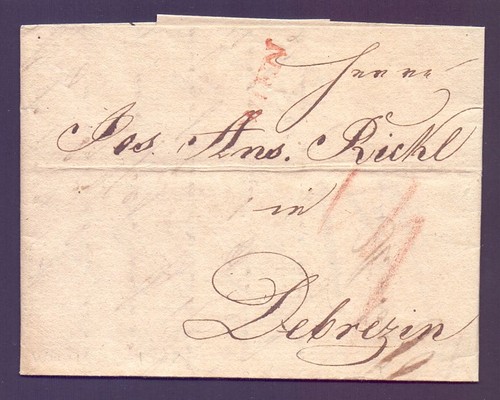 Herrn
Jos. Ans. Rickl
in
Debrezin